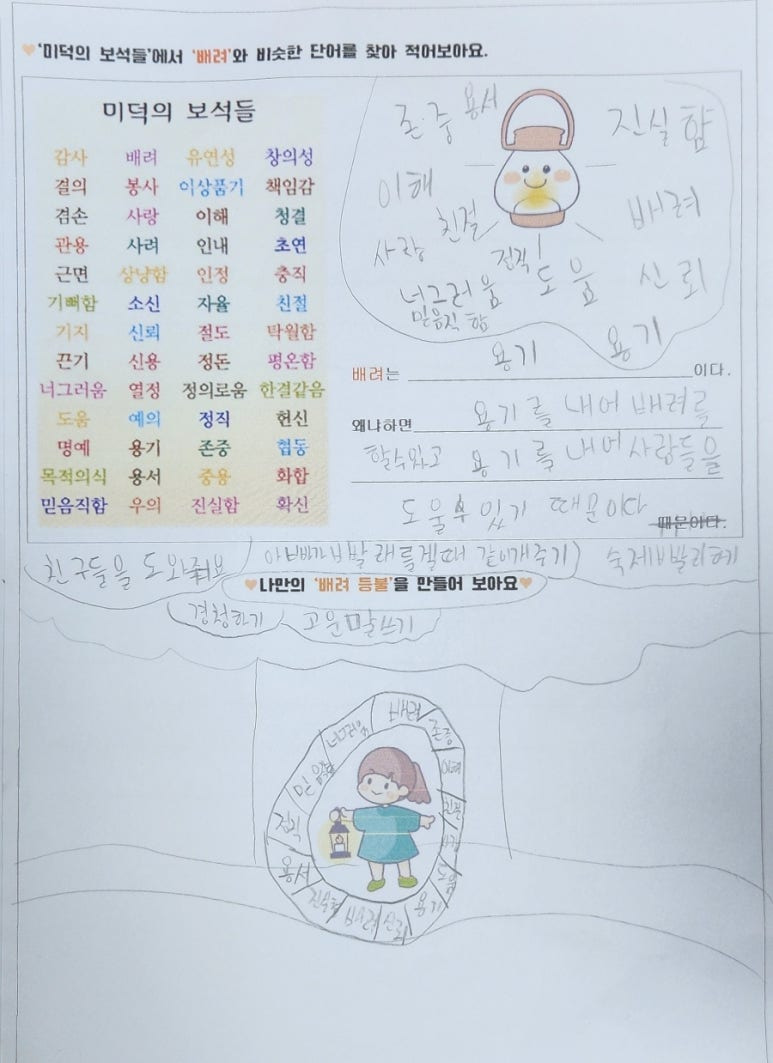 '미덕의 보석들'에서 '배려'와 비슷한 단어를 찾아 적어보아요.
미덕의 보석들
감사 배려 유연성 창의성
결의 봉사 이상품기 책임감
겸손 사랑 이해 청결
관용 사려 인내 초연
근면 상냥함 인정 충직
기뻐함 소신 자율 친절
기지 신뢰 절도 탁월함
끈기 신용 정돈 평온함
너그러움 열정 정의로움 한결같음
도움 예의 정직 헌신
명예 용기 존중 협동
목적의식 용서 중용 화합
믿음직함 우의 진실함 확신
존중 용서
진실함
이해
친절
배려
사랑
정직
도움
신뢰
너그러움
믿음직함
용기
배려는 용기 이다.
왜냐하면 용기를 내어 배려를
할수있고 용기를 내어 사람들을
도울수 있기 때문이다
때문이다.
친구들을 도와줘요
같이개주기
경청하기
고운말쓰기
나만의 '배려 등불'을 만들어 보아요
배려
존중
이해
친절
사랑
도움
용기
신뢰
진실함
용서
정직
너그러움